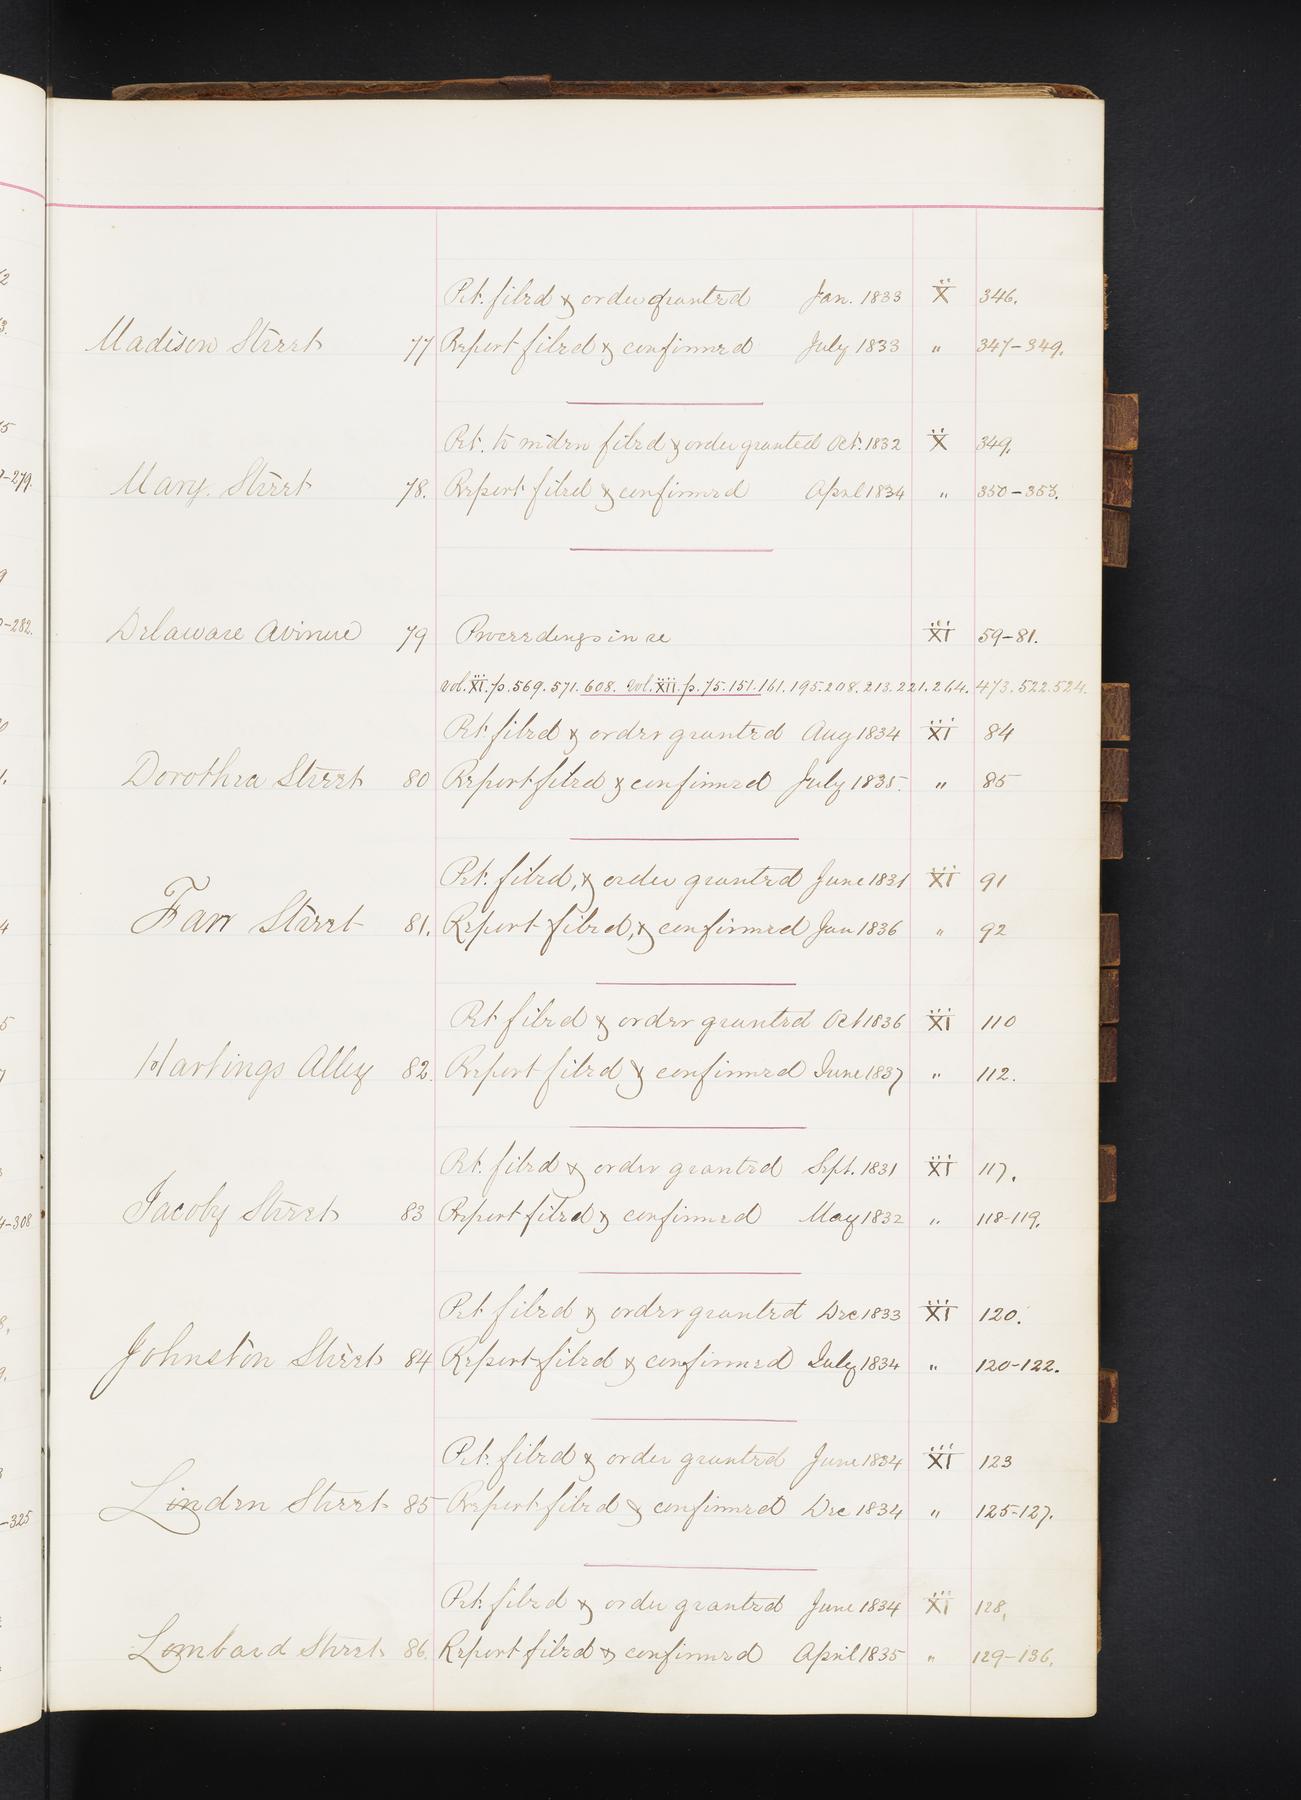 Pet. filed & order granted Jan. 1833 X 346.
Madison Street 77 Report filed & confirmed July 1833 " 347-349.
Pet. to widen filed & order granted Oct. 1832 X 349.
Mary Street 78. Report filed & confirmed April 1834 " 350-353.
Delaware Avenue 79 Proceedings in re XI 59-81.
vol. XI. p. 569. 571. 608. vol. XII. p. 75. 151. 161. 195. 208. 213. 221. 264. 473. 522. 524.
Pet filed & order granted Aug 1834 XI 84
Dorothea Street 80 Report filed & confirmed July 1835. " 85
Pet. filed, & order granted June 1831 XI 91
Farr Street 81. Report filed, & confirmed Jan 1836 " 92
Pet filed & order granted Oct 1836 XI 110
Hartings Alley 82. Report filed & confirmed June 1837 " 112.
Pet. filed & order granted Sept. 1831 XI 117.
Jacoby Street 83 Report filed & confirmed May 1832 " 118-119.
Pet filed & order granted Dec 1833 XI 120.
Johnston Street 84 Report filed & confirmed July 1834 " 120-122.
Pet. filed & order granted June 1834 XI 123
Linden Street 85 Report filed & confirmed Dec 1834 " 125-127.
Pet. filed & order granted June 1834 XI 128,
Lombard Street 86. Report filed & confirmed April 1835 " 129-136.